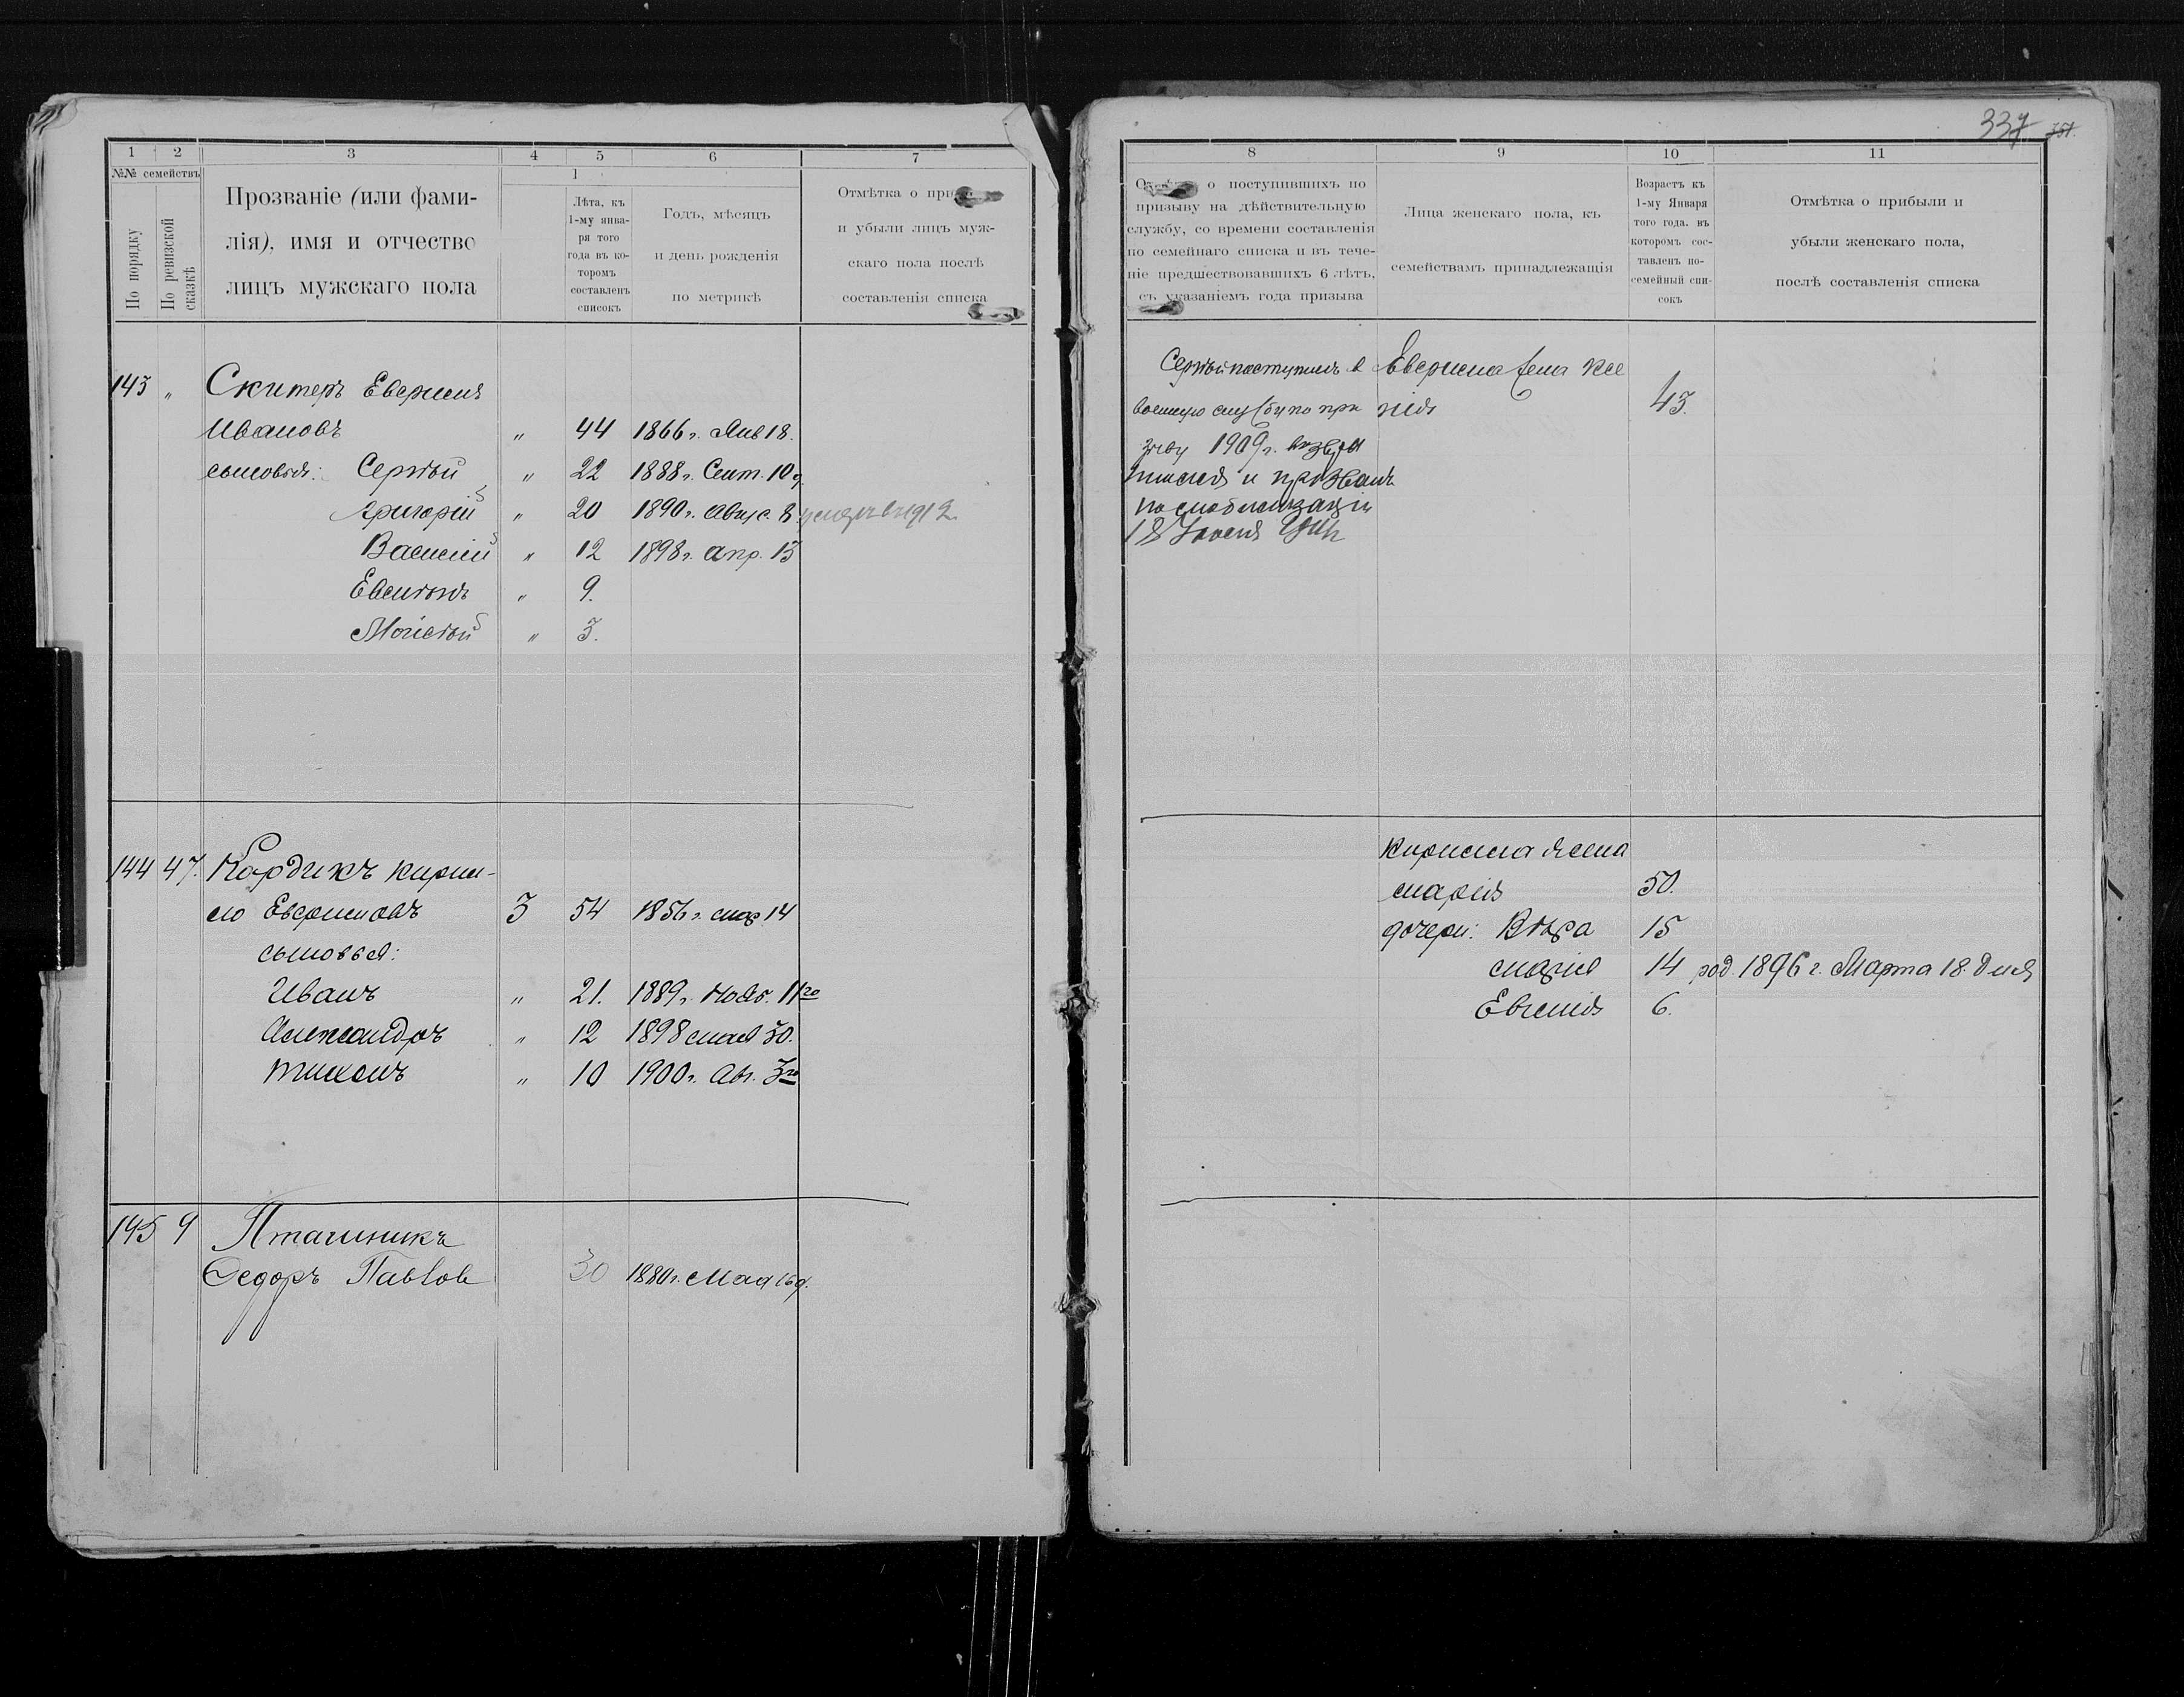 337 751.
1 2 3 4 5 6 7
№№ семействъ
По порядку
По ревизской сказкѣ
Прозваніе (или фами-
лія), имя и отчество
лицъ мужскаго пола
1
Лѣта, къ
1-му янва-
ря того
года въ ко-
торомъ
составленъ
списокъ
Годъ, мѣсяцъ
и день рожденія
по метрикѣ
Отмѣтка о
и убыли лицъ муж-
скаго пола послѣ
составленія списка
143 " Скитеръ
Ивановъ " 44 1866 г. Янв 18.
сыновья: Сергѣй " 22 1888 г. Сент. 10 д.
Григорій " 20 1890 г. Авгус. 8 1912
Василій " 12 1898 г. апр. 13
" 9.
Моисѣй " 3.
144 47. Кордикъ Кирил-
ло 3 54 1856 г. мар. 14
сыновья:
Иванъ " 21. 1889 г. Нояб. 11го
Александръ " 12 1898 мая 30.
Тихонъ " 10 1900 г. Авг. 3го
145 9 Пташникъ
Федоръ Павлов 30 1880 г. Мая 16 д.
8 9 10 11
о поступившихъ по
призыву на дѣйствительную
службу, со времени составленія
по семейнаго списка и въ тече-
ніе предшествовавшихъ 6 лѣтъ,
съ указаніемъ года призыва
Лица женскаго пола, къ
семействамъ принадлежащія
Возрастъ къ
1-му Января
того года. въ
которомъ сос-
тавленъ по-
семейный спи-
сокъ
Отмѣтка о прибыли и
убыли женскаго пола,
послѣ составленія списка
Сергѣй поступилъ в
военную службу по при
зыву 1909 г.
и призванъ
по мобилизаціи
18 Іюля
жена Ксе
нія 43.
Кирилла жена
марія 50.
дочери: Вѣра 15
марія 14 род. 1896 г. Марта 18. дня
Евгенія 6.